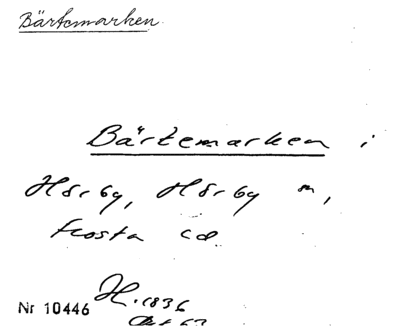 Bärtemarken.
Bärtemarken i
Hörby, Hörby m,
Frosta cd
Nr 10446 H. 1836